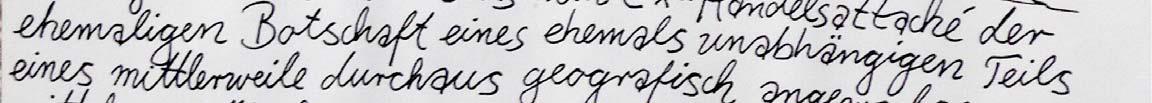 Handelsattaché der
ehemaligen Botschaft eines ehemals unabhängigen Teils
eines mittlerweile durchaus geografisch